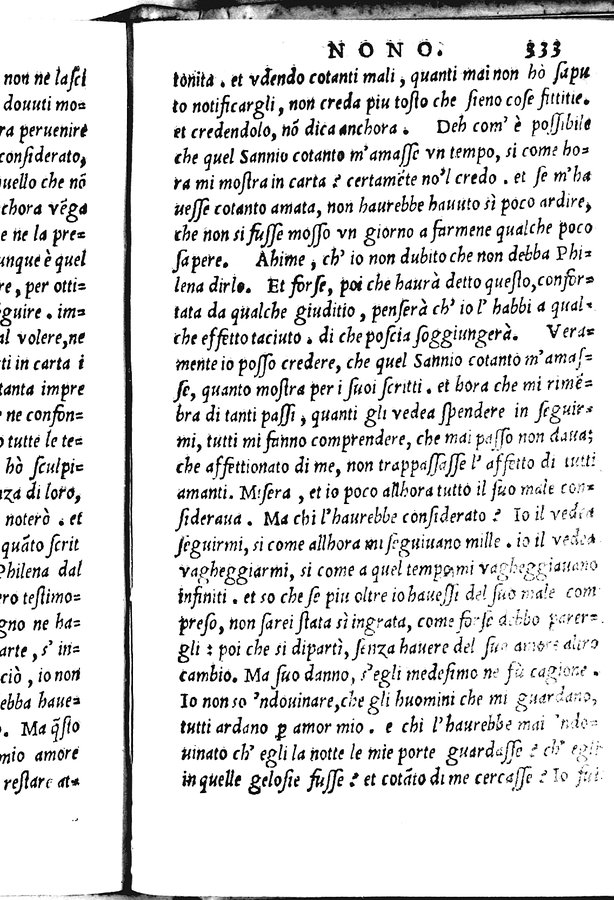 non ne lasci
douuti mo=
ra peruenire
considerato,
uello che nō
chora vēga
e ne la pre=
unque è quel
re, per otti=
guire. im=
al volere, ne
ti in carta i
tanta impre
ne confon=
o tutte le te=
hò sculpi=
nza di loro,
noterò. et
quāto scrit
Philena dal
ero testimo=
gno ne ha=
arte, s'in=
ciò, io non
ebba haue=
o. Ma q̃sto
mio amore
restare at=
NONO. 333
tonita. et vdendo cotanti mali, quanti mai non hò sapu
to notificargli, non creda piu tosto che sieno cose fittitie.
et credendolo, nō dica anchora. Deh com' è possibile
che quel Sannio cotanto m'amasse vn tempo, si come ho=
ra mi mostra in carta? certamēte no'l credo. et se m'ha
uesse cotanto amata, non haurebbe hauuto sì poco ardire,
che non si fusse mosso vn giorno a farmene qualche poco
sapere. Ahime, ch' io non dubito che non debba Phi=
lena dirlo. Et forse, poi che haurà detto questo, confor=
tata da qualche giuditio, penserà ch' io l' habbi a qual=
che effetto taciuto. di che poscia soggiungerà. Vera=
mente io posso credere, che quel Sannio cotanto m'amas=
se, quanto mostra per i suoi scritti. et hora che mi rimē=
bra di tanti passi, quanti gli vedea spendere in seguir=
mi, tutti mi fanno comprendere, che mai passo non daua;
che affettionato di me, non trappassasse l' affetto di tutti
amanti. Misera, et io poco allhora tutto il suo male con=
sideraua. Ma chi l'haurebbe considerato? Io il vedea
seguirmi, si come allhora mi seguiuano mille. io il vedea
vagheggiarmi, si come a quel tempo mi vagheggiauano
infiniti. et so che se piu oltre io hauessi del suo male com
preso, non sarei stata sì ingrata, come forse debbo parer=
gli: poi che si dipartì, senza hauere del suo amore altro
cambio. Ma suo danno, s'egli medesimo ne fù cagione.
Io non so 'ndouinare, che gli huomini che mi guardano,
tutti ardano ꝑ amor mio. e chi l'haurebbe mai 'ndo=
uinato ch' egli la notte le mie porte guardasse? ch' egli
in quelle gelosie fusse? et cotāto di me cercasse? Io